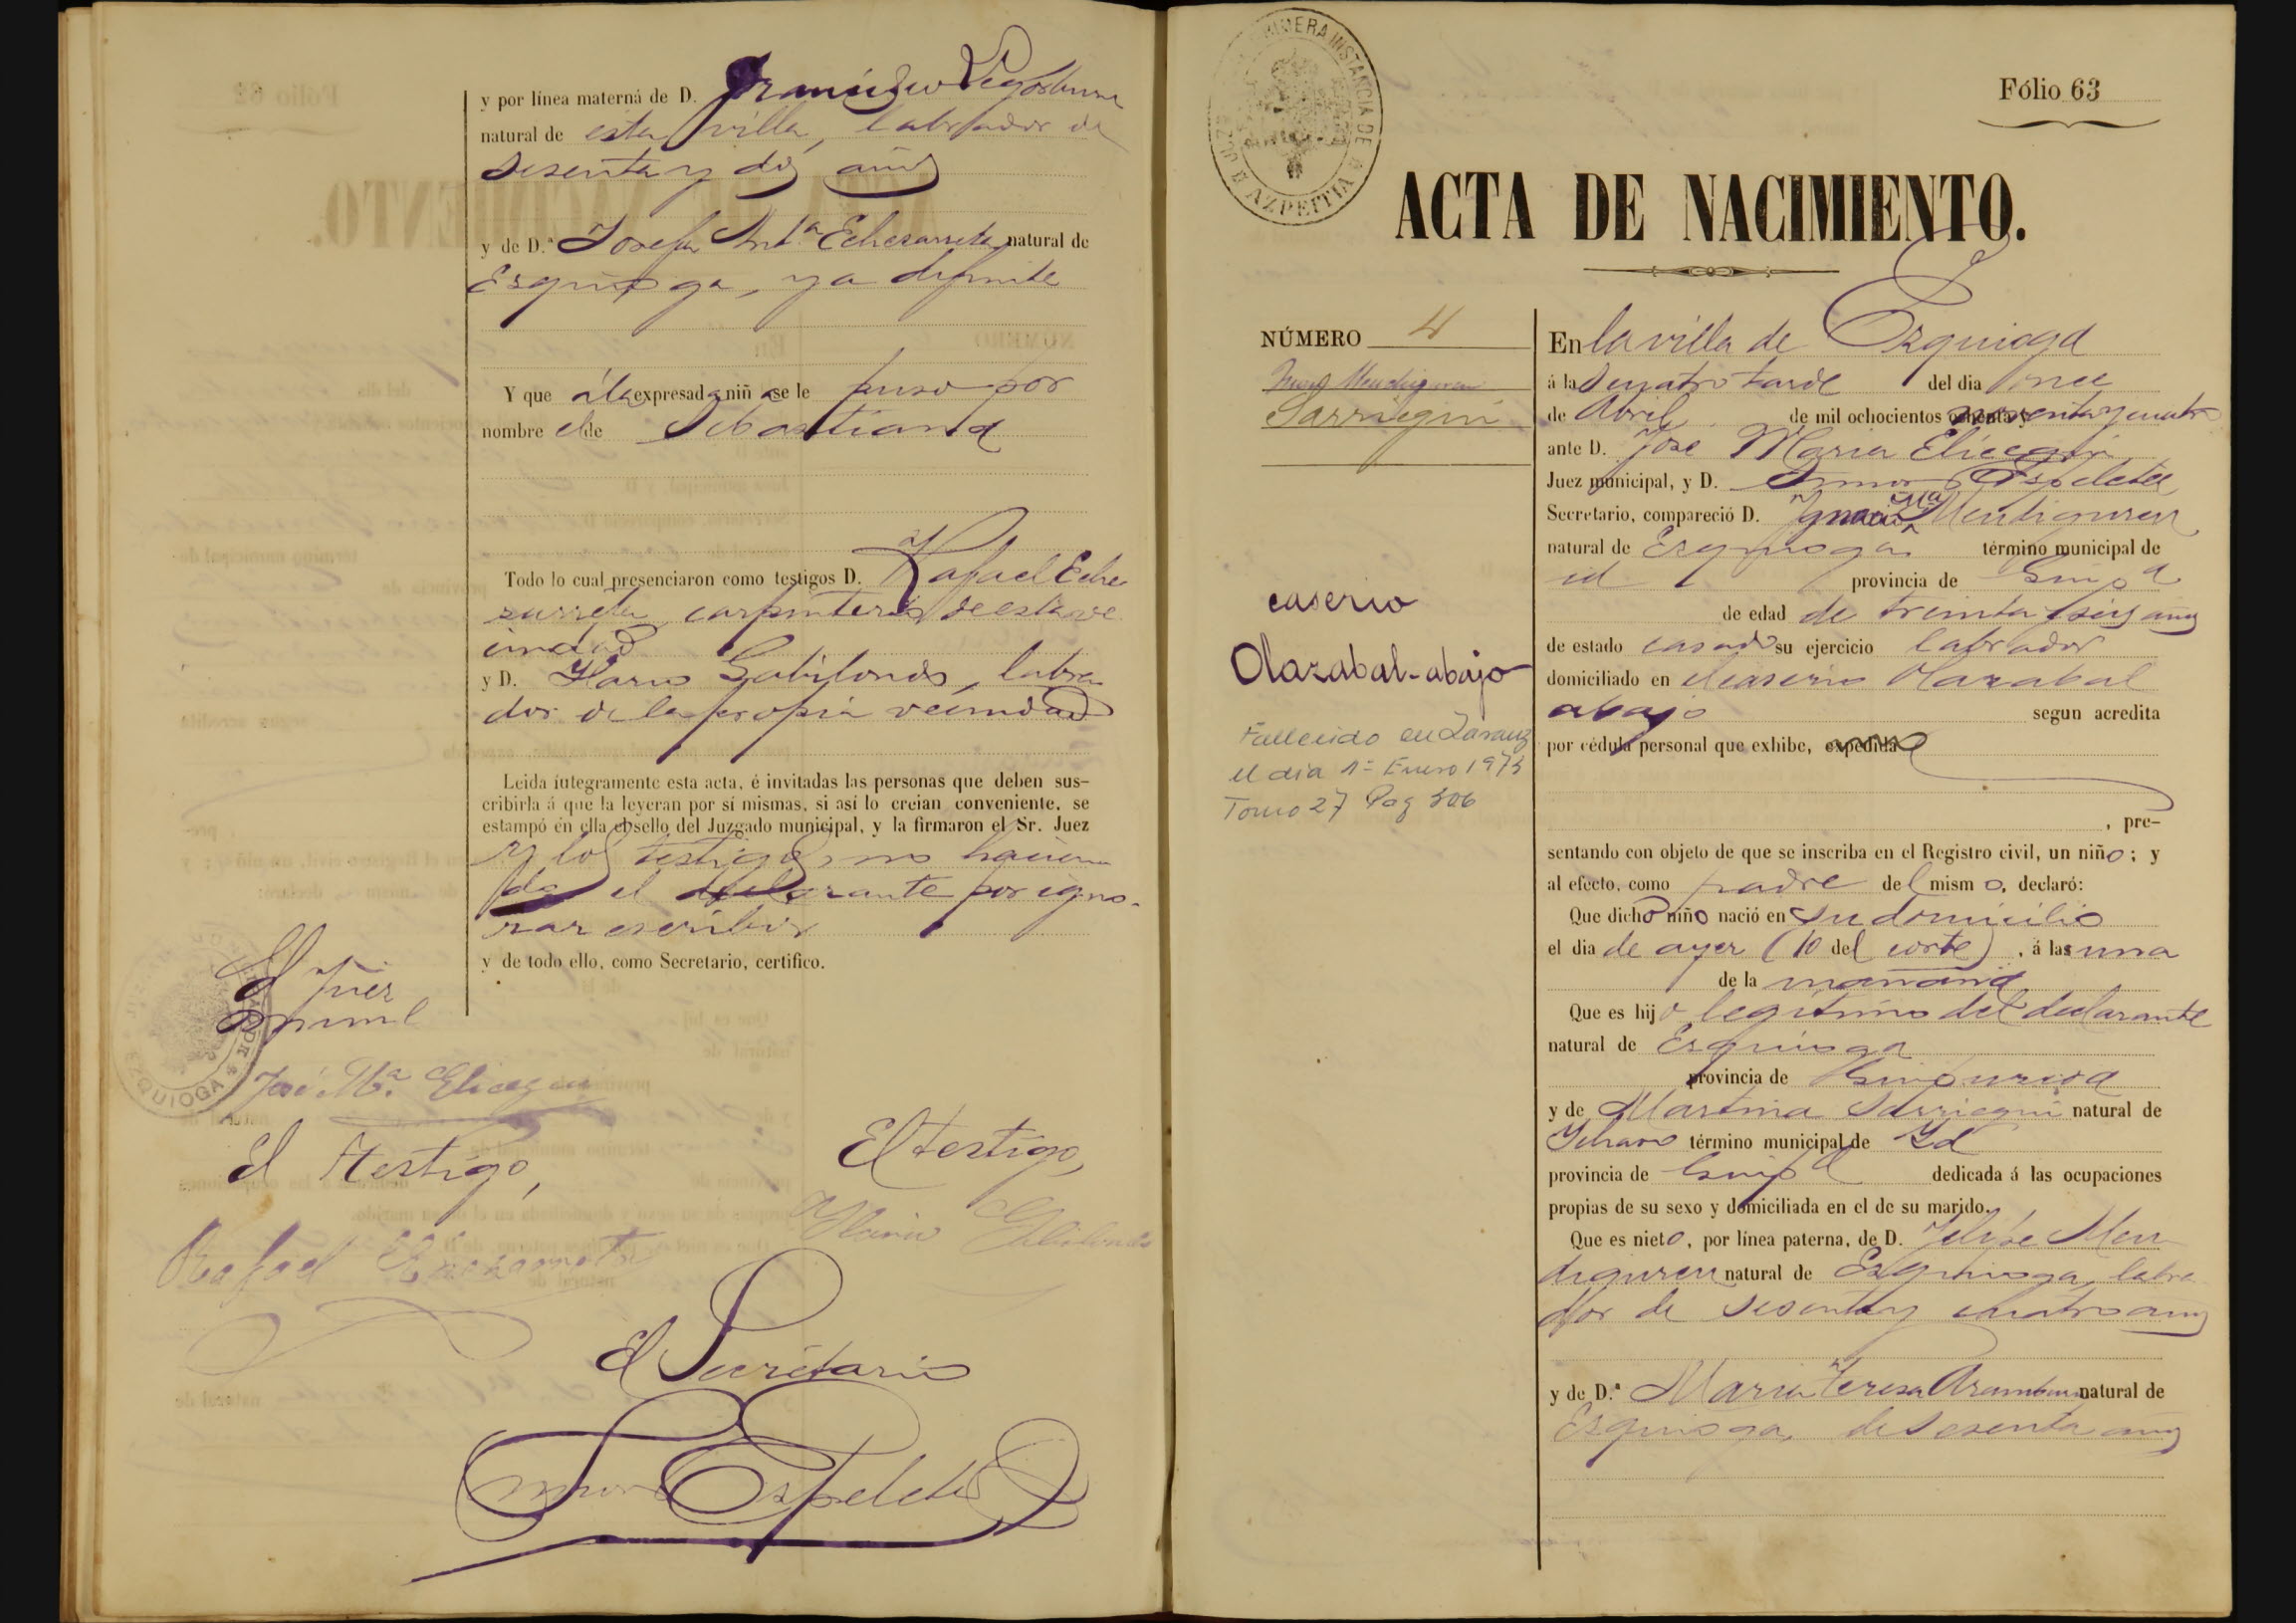 y por línea materna de D. Francisco Legorburu
natural de esta villa, labrador de
sesenta y dos años
y de D.ª Josefa Ant.ª Echezarreta natural de
Ezquioga, ya difunta
Y que á la expresada niña se le puso por
nombre el de Sebastiana
Todo lo cual presenciaron como testigos D. Rafael Eche
zarreta, carpintero de esta ve
cindad
y D. Ilario Gabilondo, labra
dor de la propia vecindad
Leida íntegramente esta acta, é invitadas las personas que deben sus-
cribirla á que la leyeran por sí mismas, si así lo creian conveniente, se
estampó en ella el sello del Juzgado municipal, y la firmaron el Sr. Juez
y los testigos, no hacien
do el declarante por igno-
rar escribir
y de todo ello, como Secretario, certifico.
El Juez
José M.ª Elicegui
EZQUIOGA
El testigo,
El testigo,
Rafael Echezarreta
Ilario Gabilondo
El Secretario
Espeleta
PRIMERA INSTANCIA DE
AZPEITIA
Fólio 63
ACTA DE NACIMIENTO.
NÚMERO 4
Mendiguren
Sarriegui
caserio
Olazabal-abajo
Fallecido en Zarauz
el dia 1º Enero 1975
Tomo 27 Pag 306
En la villa de Ezquioga
á las cuatro tarde del dia once
de Abril de mil ochocientos noventa y cuatro
ante D. José Maria Elicegui
Juez municipal, y D. Espeleta
Secretario, compareció D. Ignacio Mª Mendiguren
natural de Ezquioga término municipal de
id provincia de Guipª
de edad de treinta y seis años
de estado casado su ejercicio labrador
domiciliado en el caserio Olazabal
abajo segun acredita
por cédula personal que exhibe, expedida
, pre-
sentando con objeto de que se inscriba en el Registro civil, un niño; y
al efecto, como padre del mismo, declaró:
Que dicho niño nació en su domicilio
el dia de ayer (10 del corte), á las una
de la mañana
Que es hijo legítimo del declarante
natural de Ezquioga
provincia de Guipuzcoa
y de Martina Sarriegui natural de
Ichaso término municipal de Id
provincia de Guipª dedicada á las ocupaciones
propias de su sexo y domiciliada en el de su marido.
Que es nieto, por línea paterna, de D. Felipe Men
diguren natural de Ezquioga, labra
dor de sesenta y cuatro años
y de D.ª Maria Teresa Aramburu natural de
Ezquioga, de sesenta años